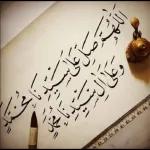 اللهم صل على سيدنا محمد
وعلى آل سيدنا محمد